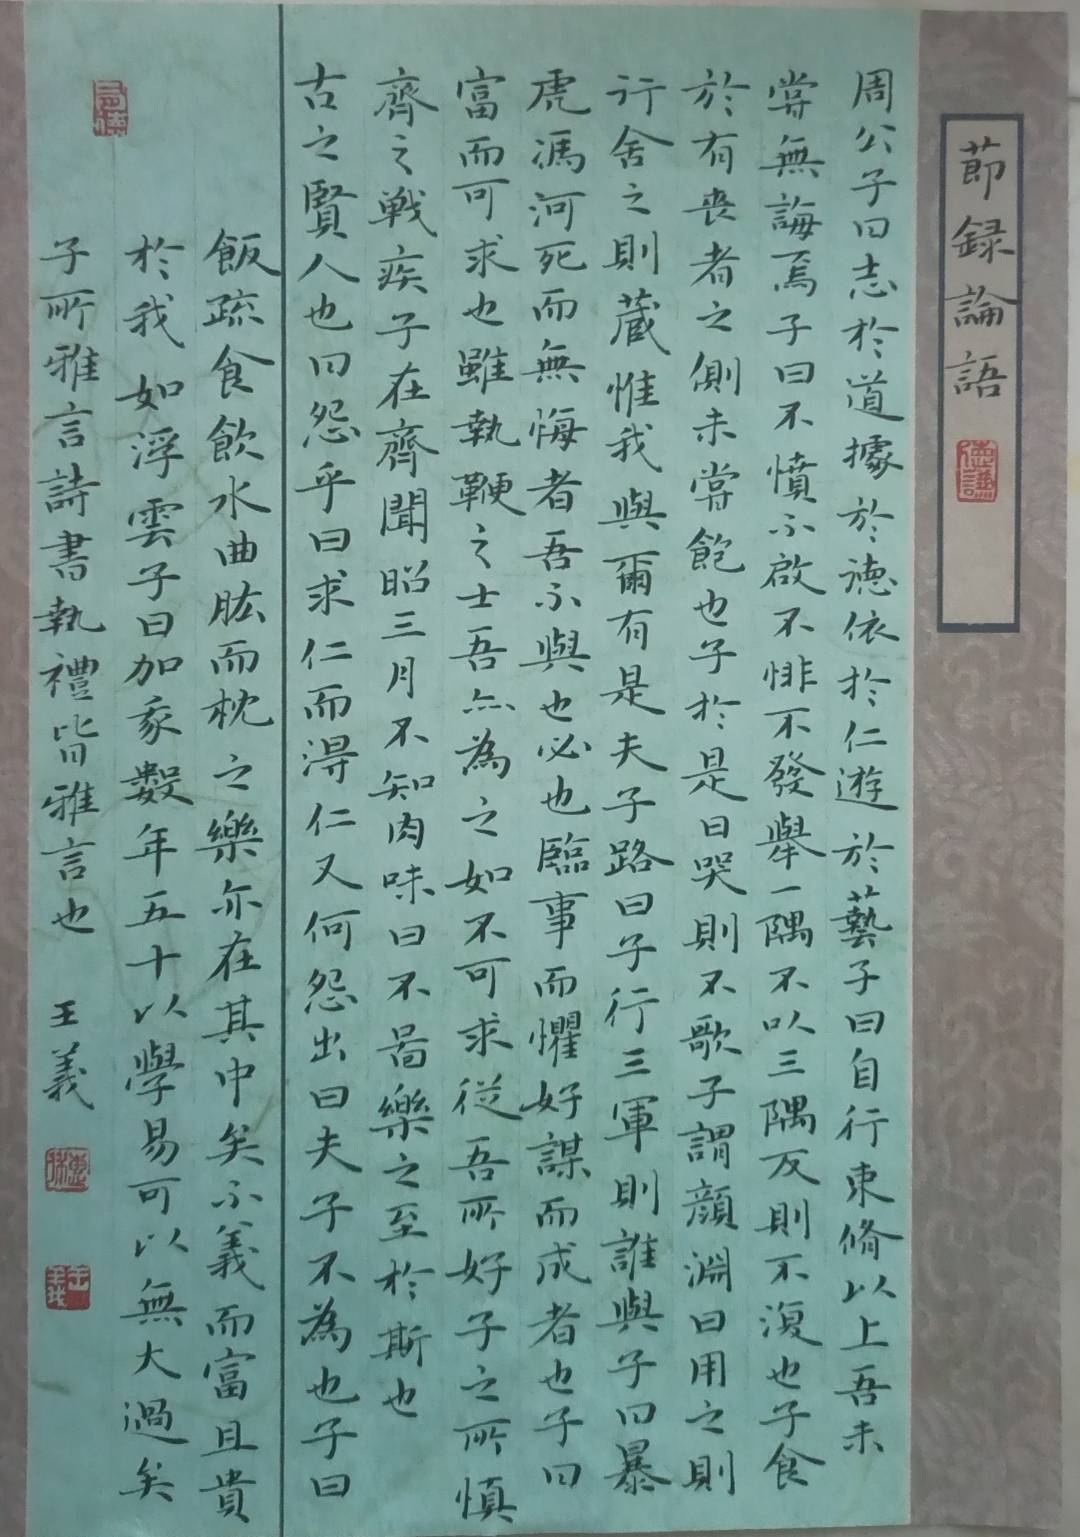 節録論語
周公子曰志於道據於德依於仁遊於藝子曰自行束脩以上吾未
嘗無誨焉子曰不憤不啟不悱不發舉一隅不以三隅反則不復也子食
於有喪者之側未嘗飽也子於是日哭則不歌子謂顔淵曰用之則
行舍之則藏惟我與爾有是夫子路曰子行三軍則誰與子曰暴
虎馮河死而無悔者吾不與也必也臨事而懼好謀而成者也子曰
富而可求也雖執鞭之士吾亦為之如不可求從吾所好子之所慎
齊之戰疾子在齊聞昭三月不知肉味曰不啚樂之至於斯也
古之賢人也曰怨乎曰求仁而得仁又何怨出曰夫子不為也子曰
飯疏食飲水曲肱而枕之樂亦在其中矣不義而富且貴
於我如浮雲子曰加我數年五十以學易可以無大過矣
子所雅言詩書執禮皆雅言也 王義